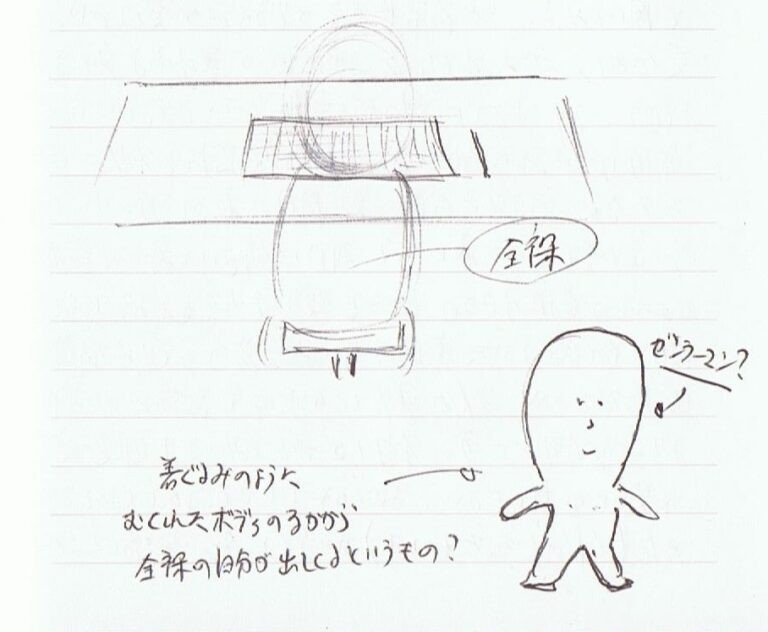 全裸
ゼンラーマン？
着ぐるみのように
むくれたボディのなかから
全裸の自分が出てくるというもの？